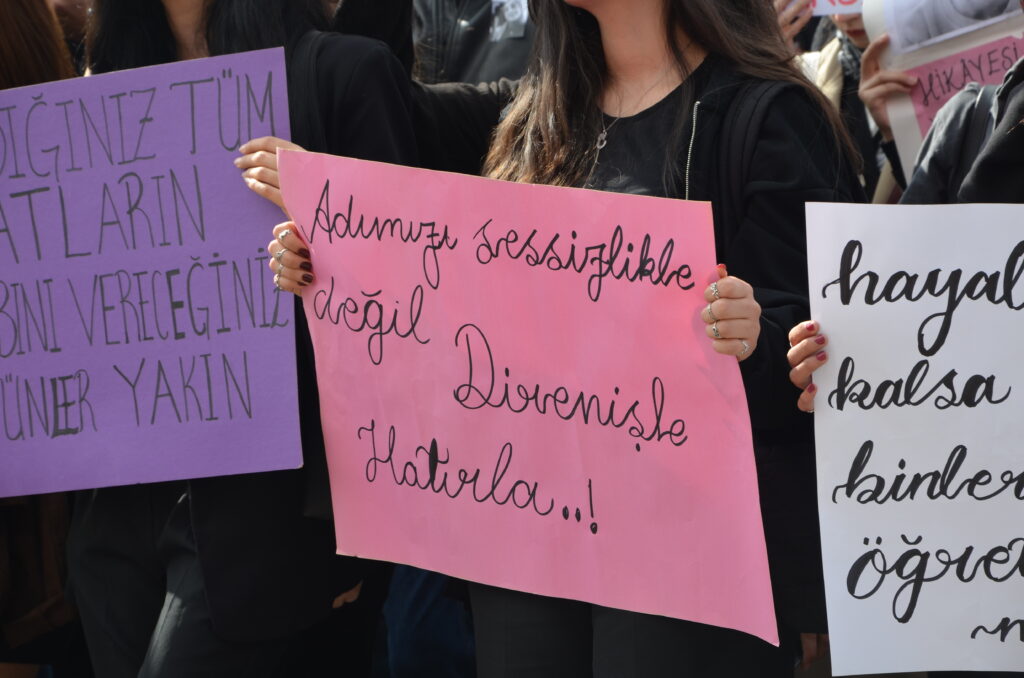 DIĞINIZ TÜM
ATLARIN
BINI VERECEĞİNİZ
ÜNLER YAKIN
Adımızı sessizlikle
değil
Direnişle
Hatırla..!
HİKAYESİ
hayal
kalsa
binler
öğret